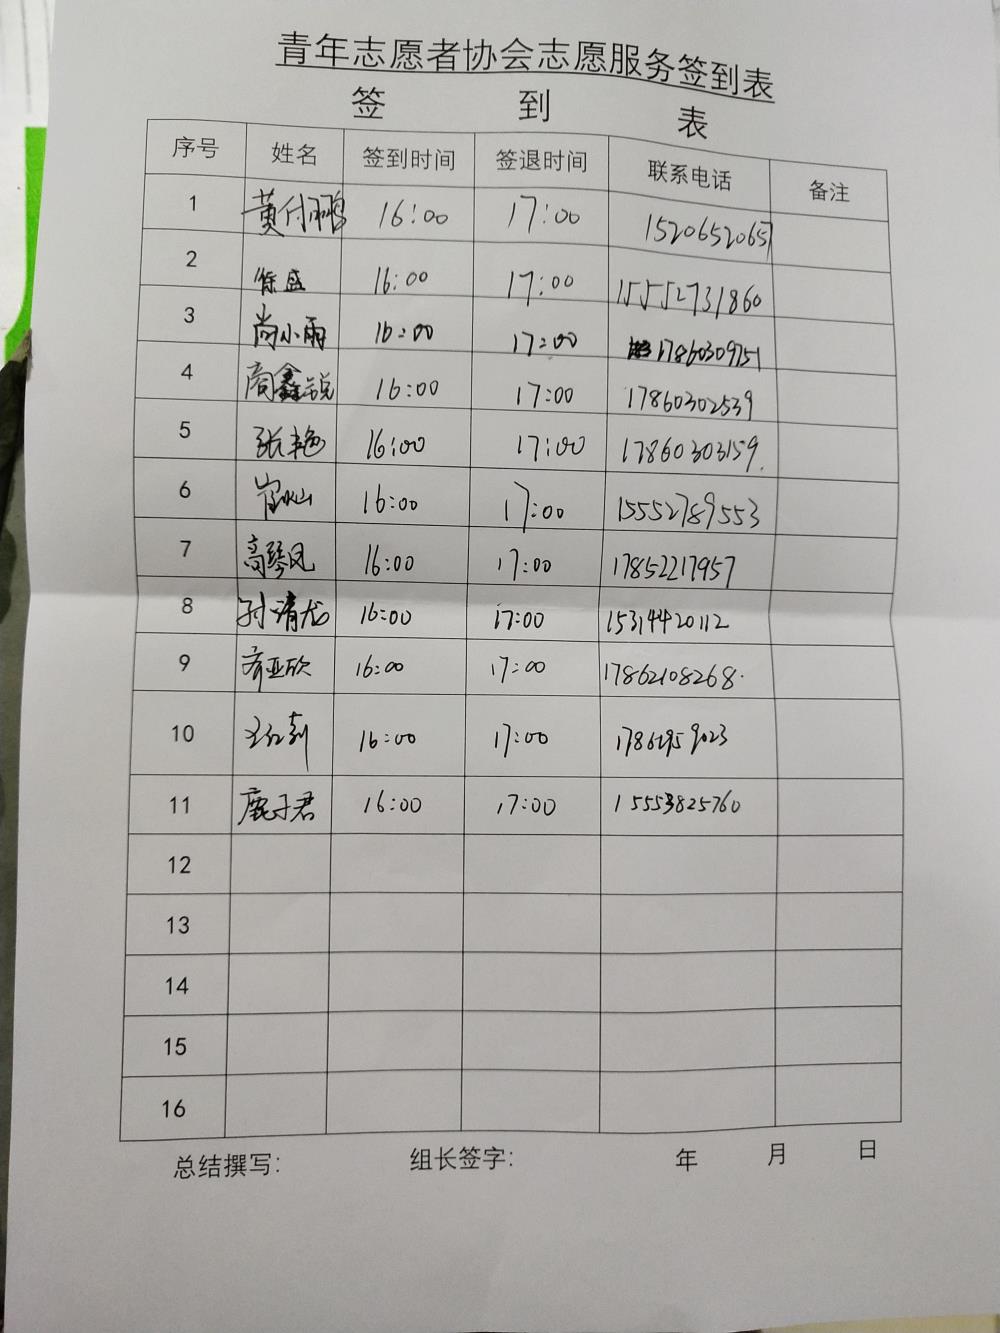 青年志愿者协会志愿服务签到表
签 到 表
序号 姓名 签到时间 签退时间 联系电话 备注
1 黄付鹏 16:00 17:00 15206520657
2 徐盛 16:00 17:00 15552731860
3 尚小雨 16:00 17:00 17860309751
4 商鑫锐 16:00 17:00 17860302539
5 张艳 16:00 17:00 17860303159
6 16:00 17:00 15552789553
7 高琴凤 16:00 17:00 17852217957
8 孙清龙 16:00 17:00 15314420112
9 齐亚欣 16:00 17:00 17862108268
10 16:00 17:00
11 鹿子君 16:00 17:00 15553825760
12
13
14
15
16
总结撰写: 组长签字: 年 月 日